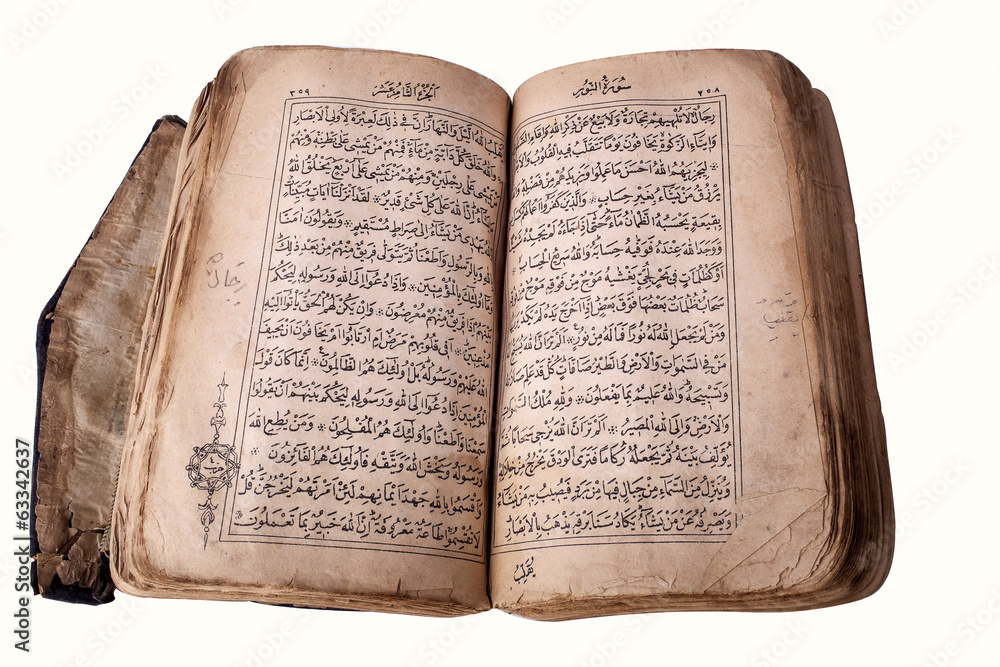 سُورَةُ النُّورِ ٣٥٨
رِجَالٌ لَا تُلْهِيهِمْ تِجَارَةٌ وَلَا بَيْعٌ عَنْ ذِكْرِ اللهِ وَاِقَامِ
وَاِيتَاءِ الزَّكٰوةِ يَخَافُونَ يَوْمًا تَتَقَلَّبُ فِيهِ الْقُلُوبُ وَالْاَبْصَارُ
لِيَجْزِيَهُمُ اللهُ اَحْسَنَ مَا عَمِلُوا وَيَزِيدَهُمْ مِنْ فَضْلِهِ
يَرْزُقُ مَنْ يَشَاءُ بِغَيْرِ حِسَابٍ وَالَّذِينَ كَفَرُوا اَعْمَالُهُمْ
بِقِيعَةٍ يَحْسَبُهُ الظَّمْاٰنُ مَاءً حَتّٰى اِذَا جَاءَهُ لَمْ يَجِدْهُ
وَوَجَدَ اللهَ عِنْدَهُ فَوَفّٰيهُ حِسَابَهُ وَاللهُ سَرِيعُ الْحِسَابِ
اَوْ كَظُلُمَاتٍ فِي بَحْرٍ لُجِّيٍّ يَغْشٰيهُ مَوْجٌ مِنْ فَوْقِهِ مَوْجٌ
سَحَابٌ ظُلُمَاتٌ بَعْضُهَا فَوْقَ بَعْضٍ اِذَا اَخْرَجَ يَدَهُ لَمْ يَكَدْ
وَمَنْ لَمْ يَجْعَلِ اللهُ لَهُ نُورًا فَمَا لَهُ مِنْ نُورٍ اَلَمْ تَرَ اَنَّ اللهَ
مَنْ فِي السَّمٰوَاتِ وَالْاَرْضِ وَالطَّيْرُ صَافَّاتٍ كُلٌّ قَدْ عَلِمَ
وَتَسْبِيحَهُ وَاللهُ عَلِيمٌ بِمَا يَفْعَلُونَ وَلِلّٰهِ مُلْكُ السَّمٰوَاتِ
وَالْاَرْضِ وَاِلَى اللهِ الْمَصِيرُ اَلَمْ تَرَ اَنَّ اللهَ يُزْجِي سَحَابًا
يُؤَلِّفُ بَيْنَهُ ثُمَّ يَجْعَلُهُ رُكَامًا فَتَرَى الْوَدْقَ يَخْرُجُ مِنْ خِلَالِهِ
وَيُنَزِّلُ مِنَ السَّمَاءِ مِنْ جِبَالٍ فِيهَا مِنْ بَرَدٍ فَيُصِيبُ بِهِ مَنْ يَشَاءُ
وَيَصْرِفُهُ عَنْ مَنْ يَشَاءُ يَكَادُ سَنَا بَرْقِهِ يَذْهَبُ بِالْاَبْصَارِ
يُقَلِّبُ
اَلْجُزْءُ الثَّامِنُ عَشَرَ ٣٥٩
يُقَلِّبُ اللهُ الَّيْلَ وَالنَّهَارَ اِنَّ فِي ذٰلِكَ لَعِبْرَةً لِاُولِي الْاَبْصَارِ
وَاللهُ خَلَقَ كُلَّ دَابَّةٍ مِنْ مَاءٍ فَمِنْهُمْ مَنْ يَمْشِي عَلٰى بَطْنِهِ وَمِنْهُمْ
مَنْ يَمْشِي عَلٰى رِجْلَيْنِ وَمِنْهُمْ مَنْ يَمْشِي عَلٰى اَرْبَعٍ يَخْلُقُ اللهُ
مَا يَشَاءُ اِنَّ اللهَ عَلٰى كُلِّ شَيْءٍ قَدِيرٌ لَقَدْ اَنْزَلْنَا اٰيَاتٍ مُبَيِّنَاتٍ
يَهْدِي مَنْ يَشَاءُ اِلٰى صِرَاطٍ مُسْتَقِيمٍ وَيَقُولُونَ اٰمَنَّا
بِاللهِ وَبِالرَّسُولِ وَاَطَعْنَا ثُمَّ يَتَوَلّٰى فَرِيقٌ مِنْهُمْ مِنْ بَعْدِ ذٰلِكَ
وَمَا اُولٰئِكَ بِالْمُؤْمِنِينَ وَاِذَا دُعُوا اِلَى اللهِ وَرَسُولِهِ لِيَحْكُمَ
بَيْنَهُمْ اِذَا فَرِيقٌ مِنْهُمْ مُعْرِضُونَ وَاِنْ يَكُنْ لَهُمُ الْحَقُّ يَأْتُوا اِلَيْهِ
مُذْعِنِينَ اَفِي قُلُوبِهِمْ مَرَضٌ اَمِ ارْتَابُوا اَمْ يَخَافُونَ اَنْ يَحِيفَ
اللهُ عَلَيْهِمْ وَرَسُولُهُ بَلْ اُولٰئِكَ هُمُ الظَّالِمُونَ اِنَّمَا كَانَ قَوْلَ
الْمُؤْمِنِينَ اِذَا دُعُوا اِلَى اللهِ وَرَسُولِهِ لِيَحْكُمَ بَيْنَهُمْ اَنْ يَقُولُوا
سَمِعْنَا وَاَطَعْنَا وَاُولٰئِكَ هُمُ الْمُفْلِحُونَ وَمَنْ يُطِعِ اللهَ
وَرَسُولَهُ وَيَخْشَ اللهَ وَيَتَّقْهِ فَاُولٰئِكَ هُمُ الْفَائِزُونَ
وَاَقْسَمُوا بِاللهِ جَهْدَ اَيْمَانِهِمْ لَئِنْ اَمَرْتَهُمْ لَيَخْرُجُنَّ قُلْ
لَا تُقْسِمُوا طَاعَةٌ مَعْرُوفَةٌ اِنَّ اللهَ خَبِيرٌ بِمَا تَعْمَلُونَ
رجال
حزب
Adobe Stock | #63342637